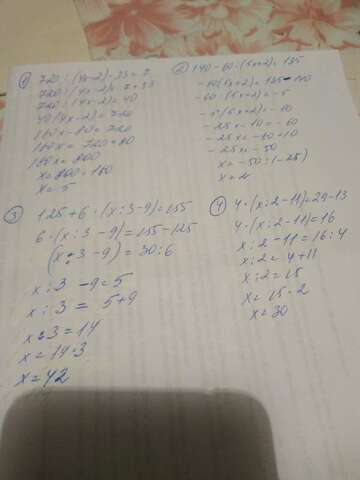 ① 720 : (4x-2)-33=7
720 : (4x-2)=7+33
720 : (4x-2)=40
40(4x-2)=720
160x-80=720
160x=720+80
160x=800
x=800:160
x=5
② 140-60:(5x+2)=135
-60:(5x+2)=135-140
-60:(5x+2)=-5
-25x-10=-60
-25x=-60+10
-25x=-50
x=-50:(-25)
x=2
③ 125+6·(x:3-9)=155
6·(x:3-9)=155-125
(x:3-9)=30:6
x:3-9=5
x:3=5+9
x:3=14
x=14·3
x=42
4 4·(x:2-11)=29-13
4·(x:2-11)=16
x:2-11=16:4
x:2=4+11
x:2=15
x=15·2
x=30